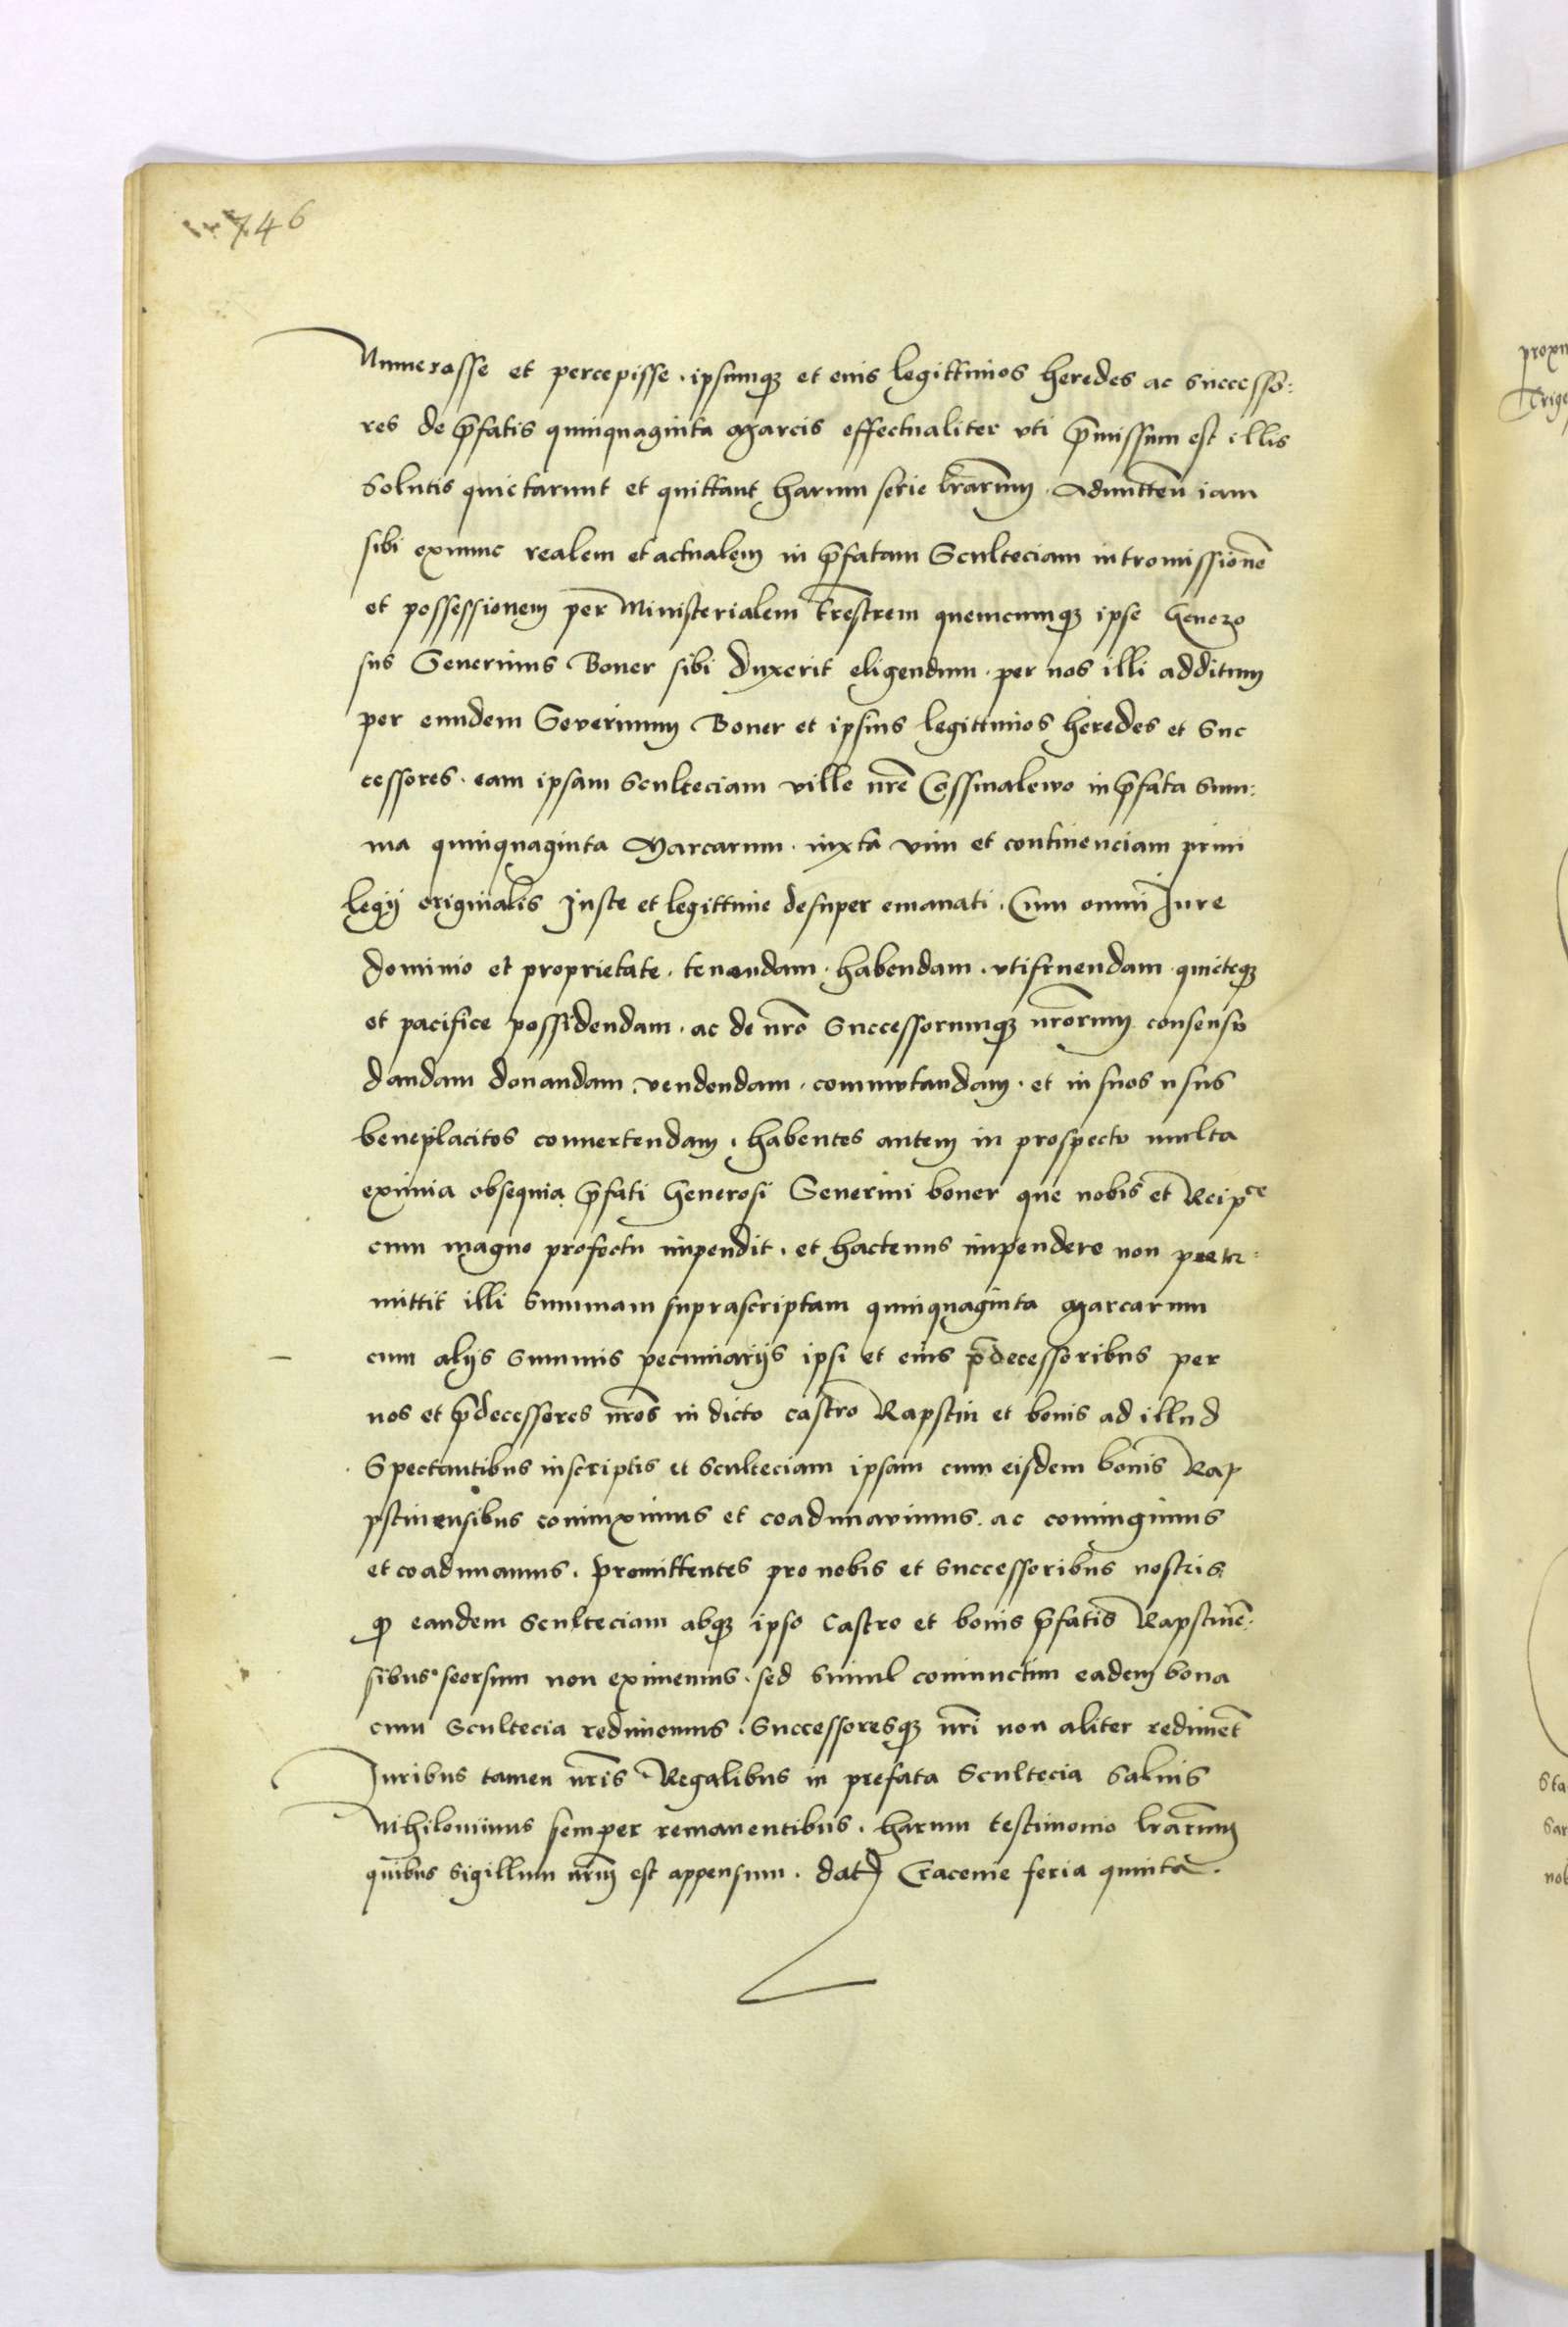 746
Numerasse et percepisse . ipsumq; et eius legittimos heredes ac successo:
res de p̄fatis quinquaginta Marcis effectualiter vti p̄missum est illis
Solutis quietarunt et quittant harum serie l̄rarum . Admitten̄ iam
sibi exnunc realem et actualem in p̄fatam Sculteciam intromissionē
et possessionem per Ministerialem t̄restrem quemcumq; ipse Genero
sus Seuerinus Boner sibi duxerit eligendum . per nos illi additum
per eundem Severinum Boner et ipsius legittimos heredes et Suc
cessores . eam ipsam Sculteciam ville nr̄e Cossmalewo in p̄fata Sum:
ma quinquaginta Marcarum . iuxta vim et continenciam priui
legij originalis Juste et legittime desuper emanati . Cum omni Jure
dominio et proprietate . tenendam . habendam . vtifruendam . quieteq;
et pacifice possidendam . ac de nr̄o Successorumq; nr̄orum consensu
dandam donandam . vendendam . commutandam . et in suos usus
beneplacitos conuertendam . habentes autem in prospectu multa
eximia obsequia p̄fati Generosi Seuerini boner que nobis et Reip̄ce
cum magno profectu impendit . et hactenus impendere non preter:
mittit illi Summam suprascriptam quinquaginta Marcarum
cum alijs Summis pecuniarijs ipsi et eius p̄decessoribus per
nos et p̄decessores nr̄os in dicto castro Rapstin et bonis ad illud
Spectantibus inscriptis et Sculteciam ipsam cum eisdem bonis Rap
pstinensibus coniunximus et coadunavimus . ac coniungimus
et coadunamus . Promittentes pro nobis et Successoribus nostris
q̄ eandem Sculteciam absq; ipso Castro et bonis p̄fatis Rapstinē:
sibus seorsum non eximemus . sed Simul coniunctim eadem bona
cum Scultecia redimemus . Successoresq; nr̄i non aliter rediment
Juribus tamen nr̄is Regalibus in prefata Scultecia Saluis
Nihilominus semper remanentibus . harum testimonio l̄rarum
quibus Sigillum nr̄m est appensum . dat̄ Cracouie feria quinta .